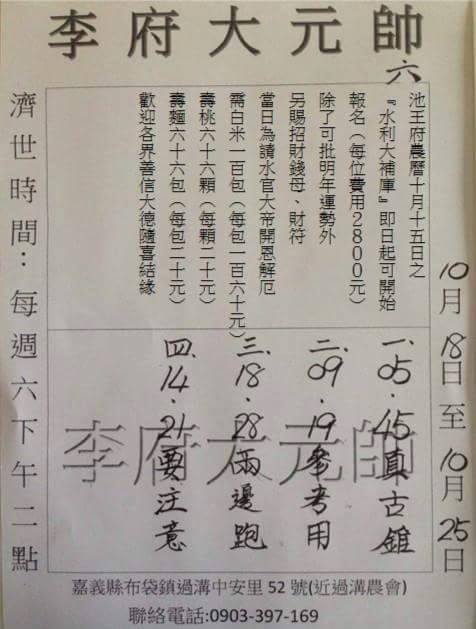 李府大元帥
六
池王府農曆十月十五日之
『水利大補庫』即日起可開始
報名（每位費用2800元）
除了可批明年運勢外
另賜招財錢母、財符
當日為請水官大帝開恩解厄
需白米一百包（每包一百六十元）
壽桃六十六顆（每顆二十元）
壽麵六十六包（每包二十元）
歡迎各界善信大德隨喜結緣
濟世時間：每週六下午二點
10月18日至10月25日
一、05．45真古錐
二、09．19參考用
三、18．28兩邊跑
四、14．21要注意
李府大元帥
嘉義縣布袋鎮過溝中安里52號(近過溝農會)
聯絡電話:0903-397-169